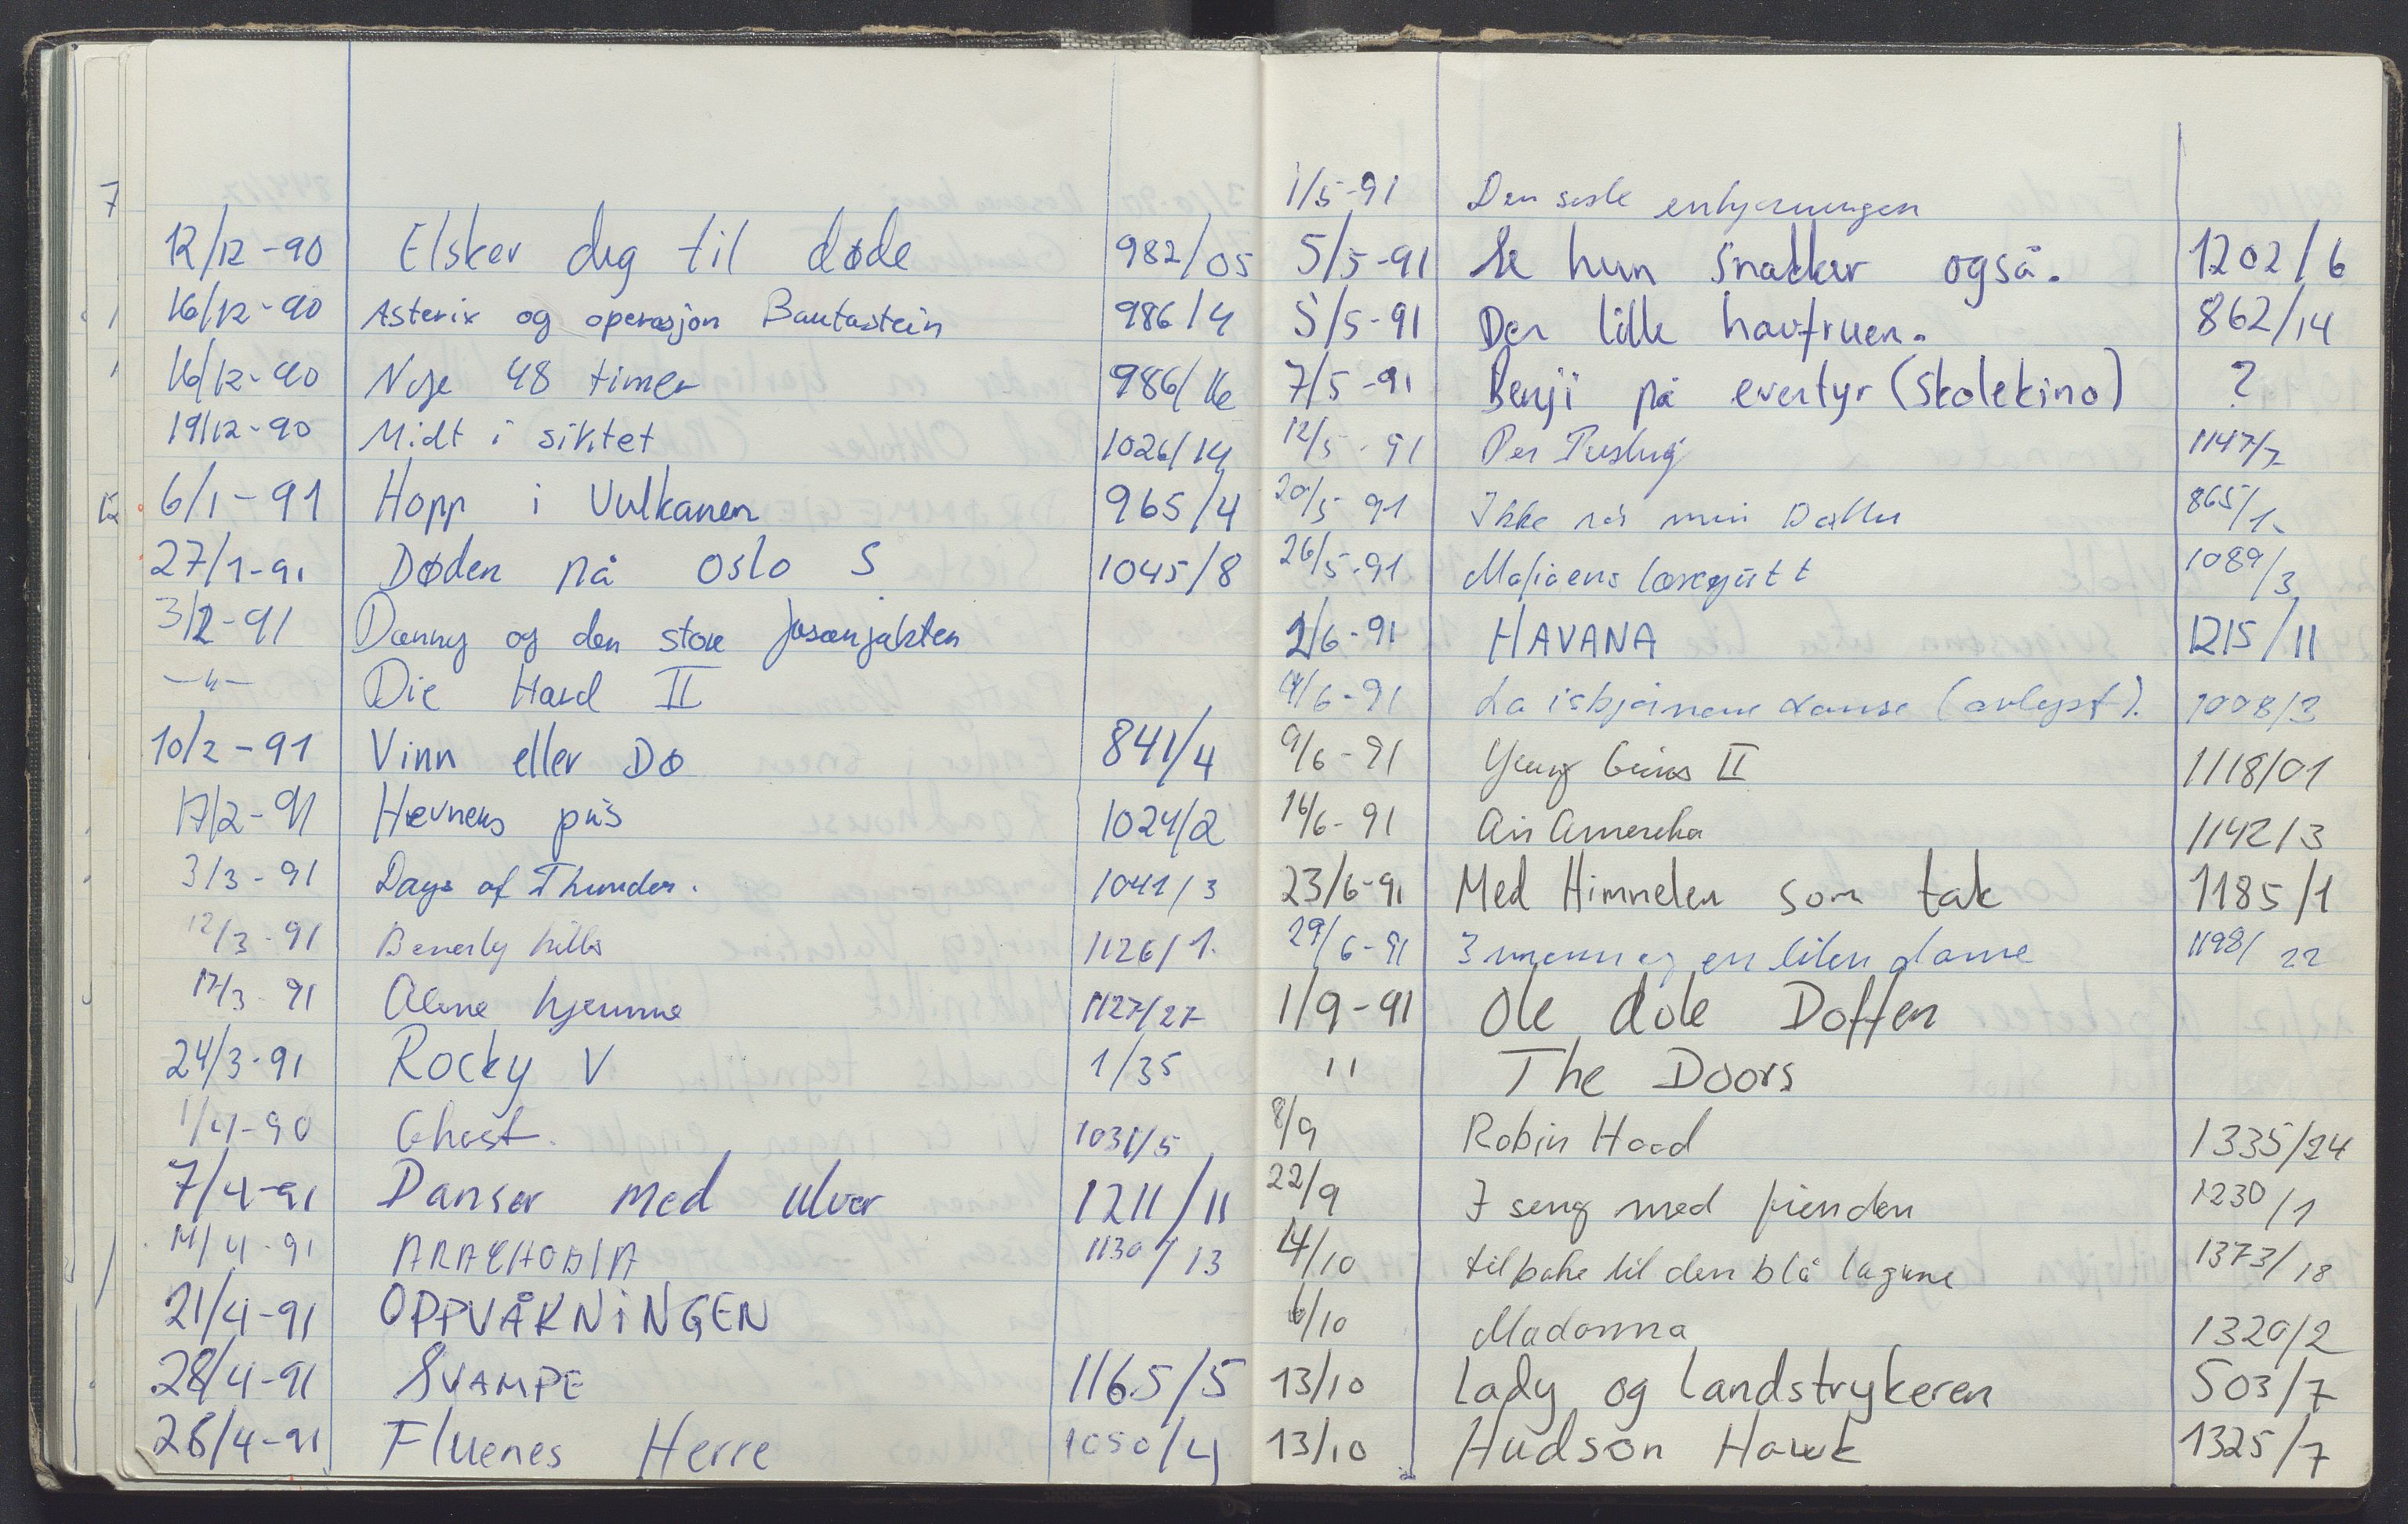 7
12/12-90 Elsker deg til døde 982/05
16/12-90 Asterix og operasjon Bautastein 986/4
16/12-90 Nye 48 timer 986/16
19/12-90 Midt i siktet 1026/14
6/1-91 Hopp i Vulkanen 965/4
27/1-91 Døden på Oslo S 1045/8
3/2-91 Danny og den store fasanjakten
—"— Die Hard II
10/2-91 Vinn eller Dø 841/4
17/2-91 Hevnens pris 1024/2
3/3-91 Days of Thunder. 1041/3
12/3-91 Beverly hills 1126/1.
17/3-91 Alene hjemme 1127/27
24/3-91 Rocky V 1/35
1/4-90 Ghost. 1031/5
7/4-91 Danser med ulver 1211/11
14/4-91 ARACHOBIA 1130/13
21/4-91 OPPVÅKNINGEN
28/4-91 SVAMPE 1165/5
28/4-91 Fluenes Herre 1050/4
1/5-91 Den siste enhjørningen
5/5-91 Se hun snakker også. 1202/6
5/5-91 Den lille havfruen. 862/14
7/5-91 Benji på eventyr (Skolekino) ?
12/5-91 Per Pusling 1147/7
20/5-91 Ikke rør min Datter 865/1.
26/5-91 Mafiaens læregutt 1089/3
2/6-91 HAVANA 1215/11
4/6-91 La isbjørnene danse (avlyst). 1008/3
9/6-91 Young Guns II 1118/01
16/6-91 Air Amerika 1142/3
23/6-91 Med Himmelen som tak 1185/1
29/6-91 3 menn og en liten dame 1198/22
1/9-91 Ole dole Doffen
" The Doors
8/9 Robin Hood 1335/24
22/9 I seng med fienden 1230/1
4/10 tilbake til den blå lagune 1373/18
6/10 Madonna 1320/2
13/10 Lady og Landstrykeren 503/7
13/10 Hudson Hawk 1325/7